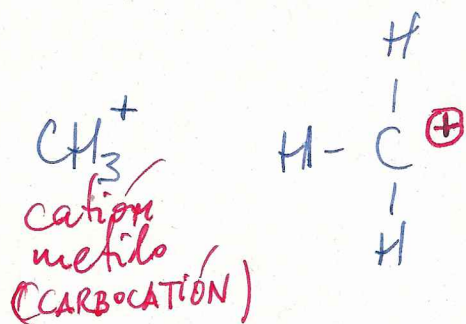 CH₃⁺
catión
metilo
(CARBOCATIÓN)
H
H - C ⊕
H